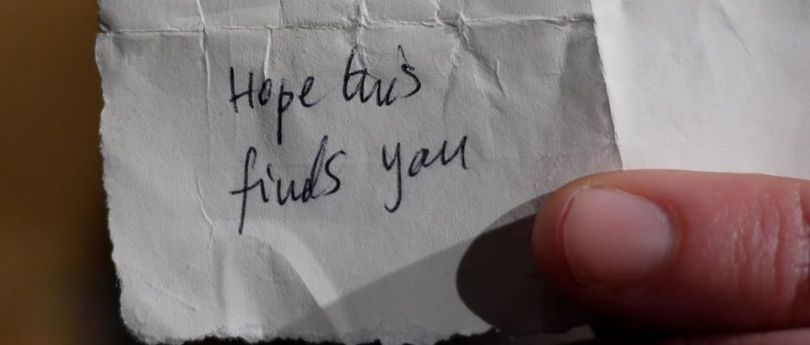 Hope this
finds you